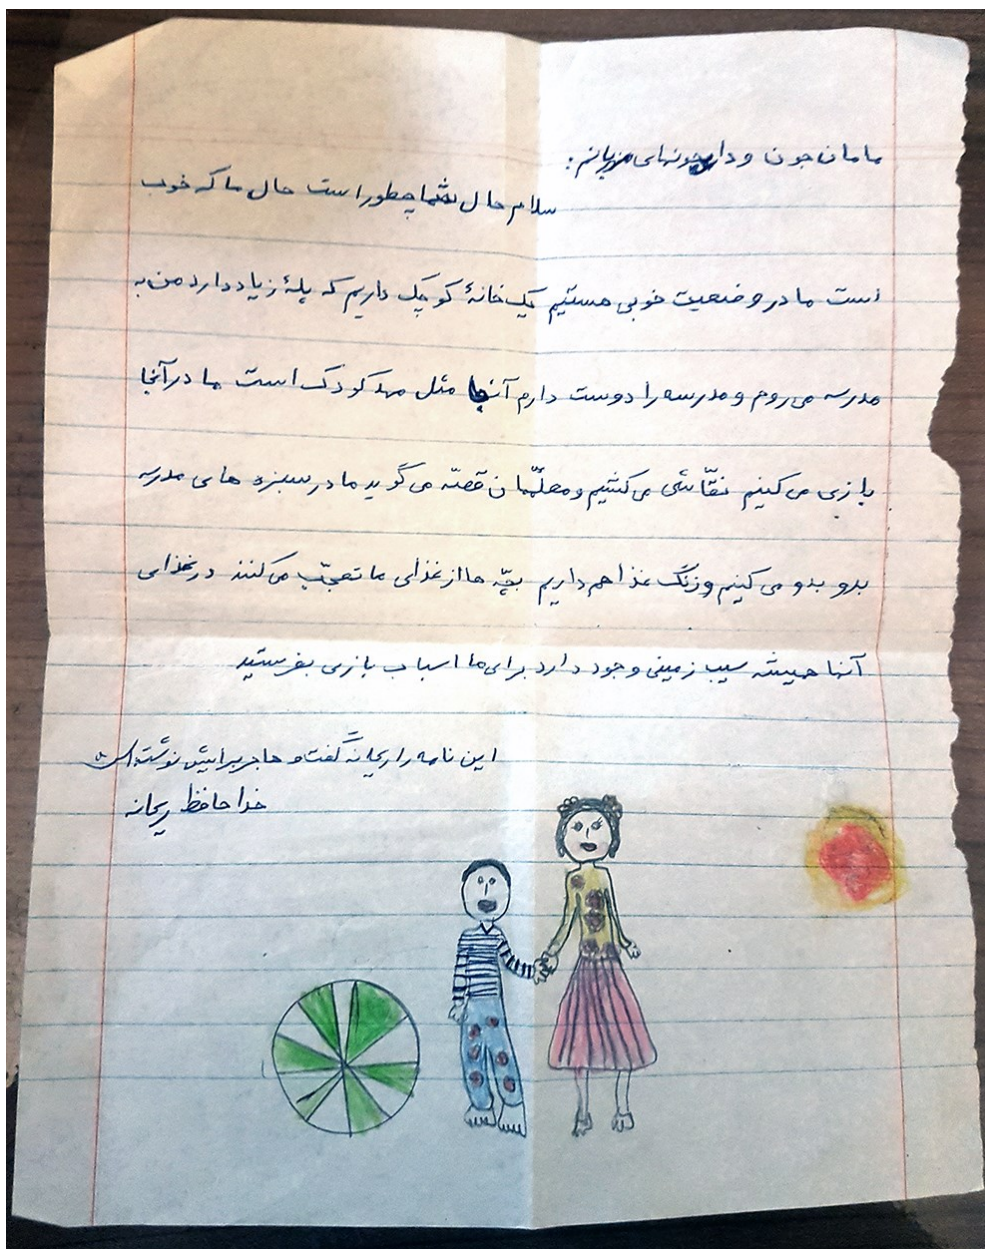 مامان جون و دایی‌جونهای عزیزم :
سلام حال شما چطور است حال ما که خوب
است ما در وضعیت خوبی هستیم یک خانهٔ کوچک داریم که پلهٔ زیاد دارد من به
مدرسه می‌روم و مدرسه را دوست دارم آنجا مثل مهد کودک است ما در آنجا
بازی می‌کنیم نقّاشی می‌کشیم و معلّممان قصّه می‌گوید ما در سبزه های مدرسه
بدو بدو می‌کنیم و زنگ غذا هم داریم بچّه ها از غذای ما تعجّب می‌کنند در غذای
آنها همیشه سیب زمینی وجود دارد برای ما اسباب بازی بفرستید
این نامه را ریحانه گفت و هاجر برایش نوشته است
خداحافظ ریحانه